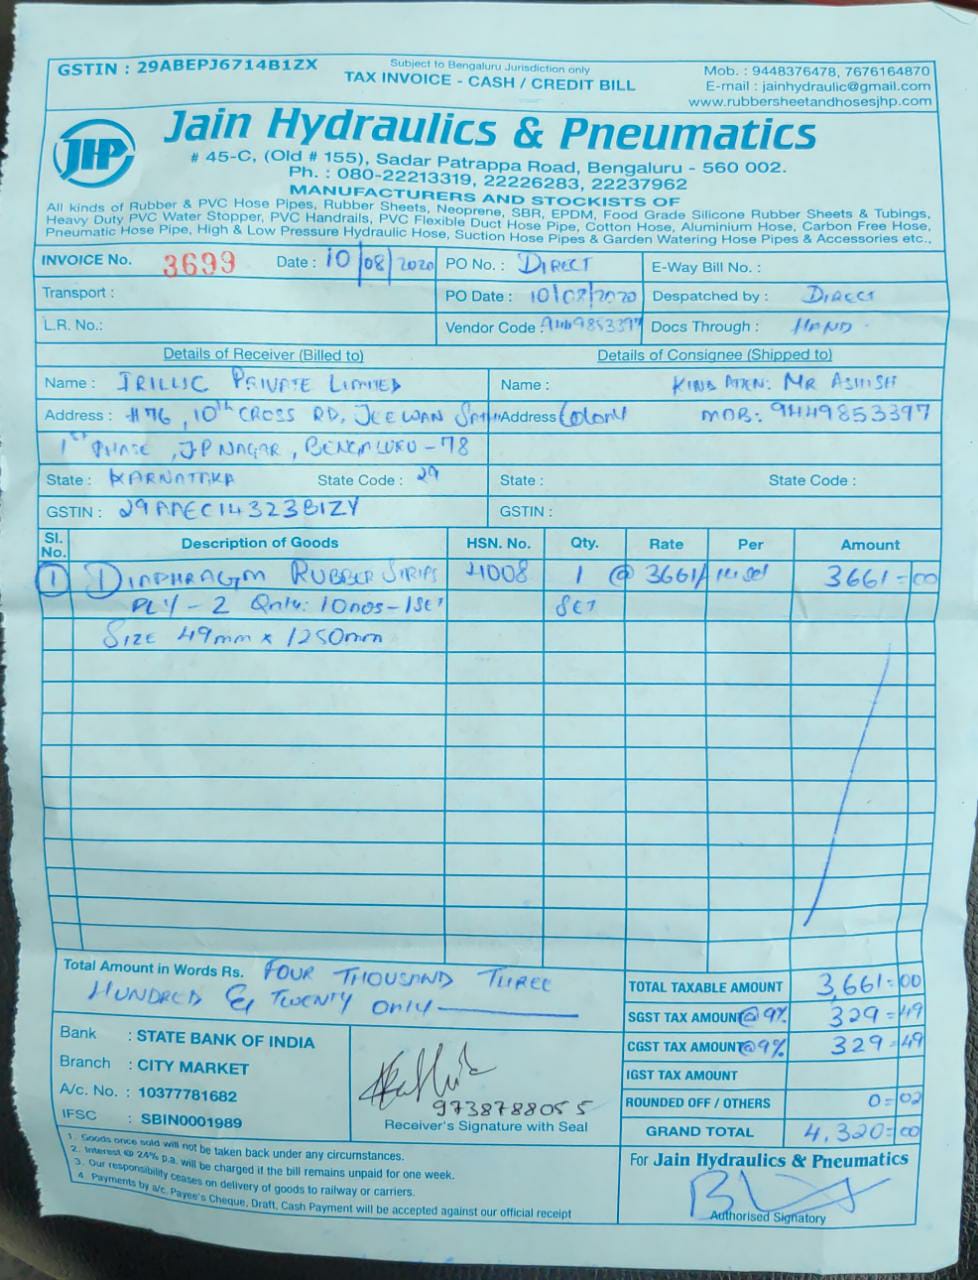 GSTIN : 29ABEPJ6714B1ZX
Subject to Bengaluru Jurisdiction only
TAX INVOICE - CASH / CREDIT BILL
Mob. : 9448376478, 7676164870
E-mail : jainhydraulic@gmail.com
www.rubbersheetandhosesjhp.com
JHP
Jain Hydraulics & Pneumatics
# 45-C, (Old # 155), Sadar Patrappa Road, Bengaluru - 560 002.
Ph. : 080-22213319, 22226283, 22237962
MANUFACTURERS AND STOCKISTS OF
All kinds of Rubber & PVC Hose Pipes, Rubber Sheets, Neoprene, SBR, EPDM, Food Grade Silicone Rubber Sheets & Tubings,
Heavy Duty PVC Water Stopper, PVC Handrails, PVC Flexible Duct Hose Pipe, Cotton Hose, Aluminium Hose, Carbon Free Hose,
Pneumatic Hose Pipe, High & Low Pressure Hydraulic Hose, Suction Hose Pipes & Garden Watering Hose Pipes & Accessories etc.,
INVOICE No. 3699 Date : 10/08/2020 PO No. : DIRECT E-Way Bill No. :
Transport : PO Date : 10/08/2020 Despatched by : DIRECT
L.R. No.: Vendor Code : 9449853397 Docs Through : HAND
Details of Receiver (Billed to) Details of Consignee (Shipped to)
Name : PRIVATE LIMITED Name : KIND ATTN: MR ASHISH
Address : #76, 10th CROSS RD, JEEWAN Address Colony MOB: 9449853397
1ST PHASE, J.P NAGAR, BENGALURU-78
State : KARNATAKA State Code : 29 State : State Code :
GSTIN : GSTIN :
Sl. No. Description of Goods HSN. No. Qty. Rate Per Amount
1 DIAPHRAGM RUBBER STRIPS 4008 1 @ 3661/ 3661=00
PLY-2 Qnty: 10nos-1SET SET
SIZE 49mm x 1250mm
Total Amount in Words Rs. FOUR THOUSAND THREE
HUNDRED & TWENTY only
TOTAL TAXABLE AMOUNT 3,661=00
SGST TAX AMOUNT @9% 329=49
CGST TAX AMOUNT @9% 329=49
IGST TAX AMOUNT
ROUNDED OFF / OTHERS 0=02
GRAND TOTAL 4,320=00
Bank : STATE BANK OF INDIA
Branch : CITY MARKET
A/c. No. : 10377781682
IFSC : SBIN0001989
9738788055
Receiver's Signature with Seal
1. Goods once sold will not be taken back under any circumstances.
2. Interest @ 24% p.a. will be charged if the bill remains unpaid for one week.
3. Our responsibility ceases on delivery of goods to railway or carriers.
4. Payments by a/c. Payee's Cheque, Draft, Cash Payment will be accepted against our official receipt
For Jain Hydraulics & Pneumatics
Authorised Signatory